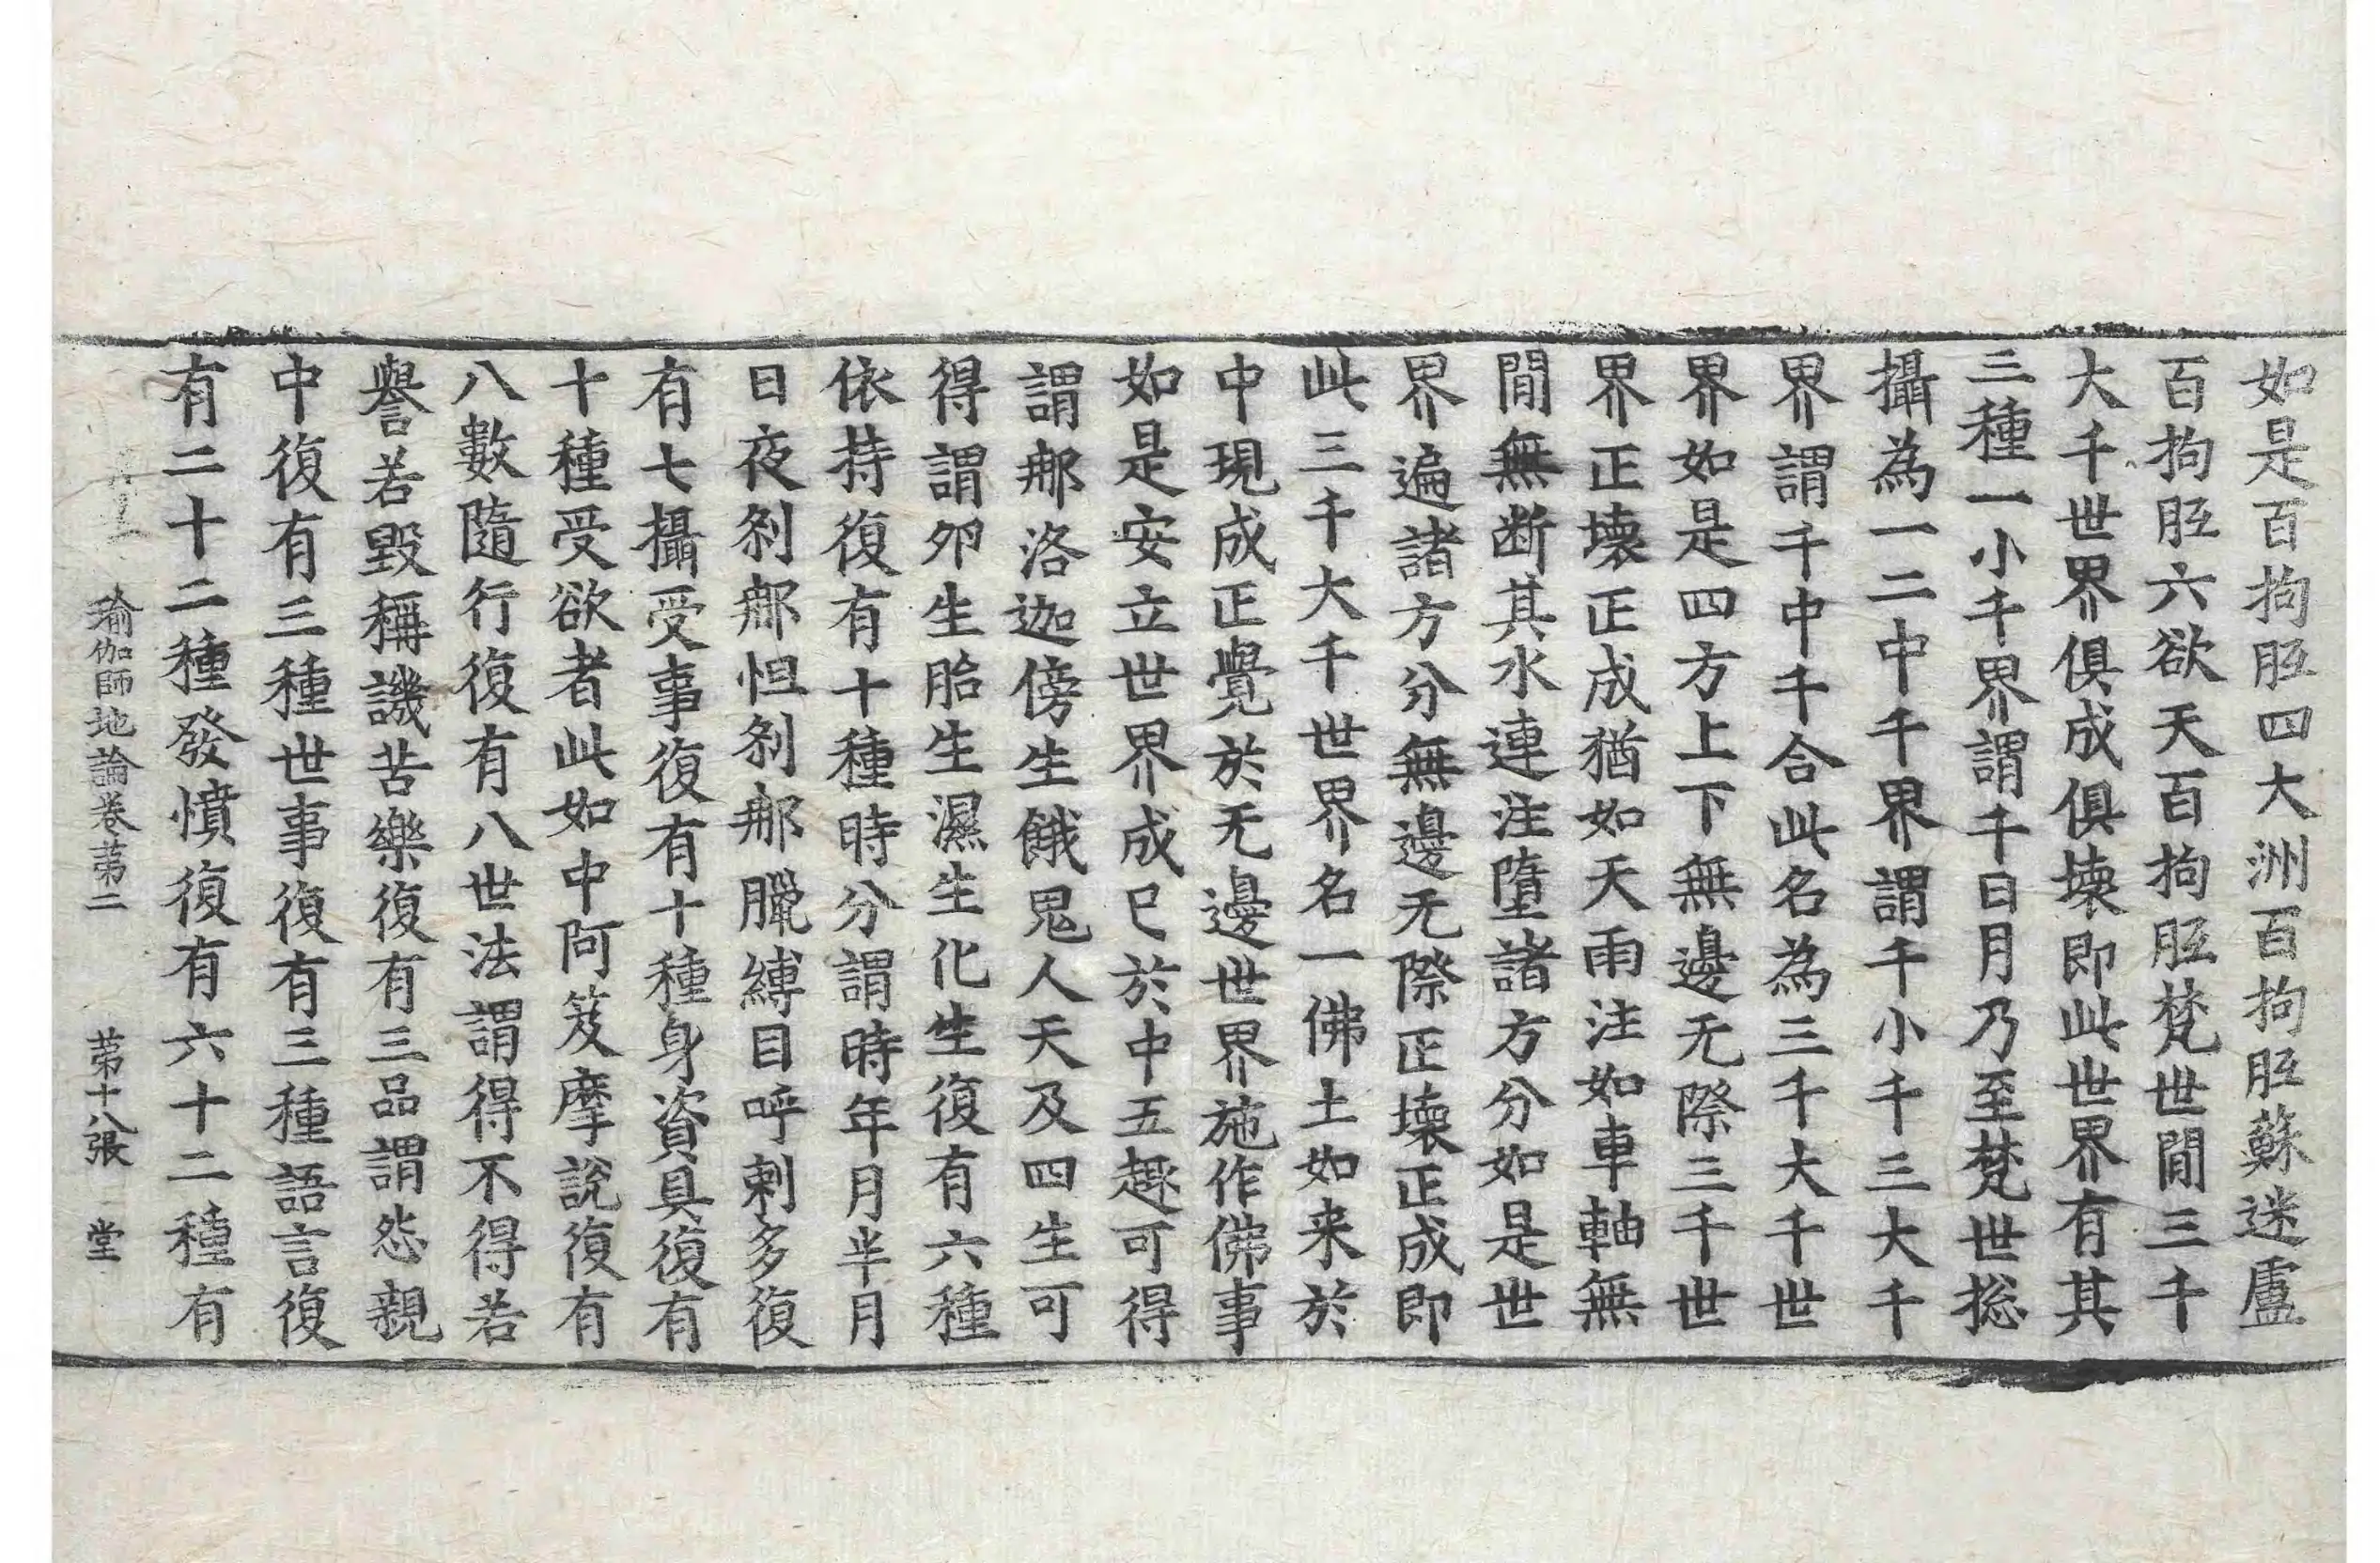 如是百拘胝四大洲百拘胝蘇迷盧
百拘胝六欲天百拘胝梵世閒三千
大千世界俱成俱壞即此世界有其
三種一小千界謂千日月乃至梵世㧾
攝為一二中千界謂千小千三大千
界謂千中千合此名為三千大千世
界如是四方上下無邊无際三千世
界正壞正成猶如天雨注如車軸無
閒無断其水連注墮諸方分如是世
界遍諸方分無邊无際正壞正成即
此三千大千世界名一佛土如来於
中現成正覺於无邊世界施作佛事
如是安立世界成已於中五趣可得
謂那洛迦傍生餓鬼人天及四生可
得謂夘生胎生濕生化生復有六種
依持復有十種時分謂時年月半月
日夜剎那怛剎那臘縛目呼剌多復
有七攝受事復有十種身資具復有
十種受欲者此如中阿笈摩說復有
八數隨行復有八世法謂得不得若
譽若毀稱譏苦樂復有三品謂怨親
中復有三種世事復有三種語言復
有二十二種發憤復有六十二種有
瑜伽師地論卷苐二 苐十八張 堂